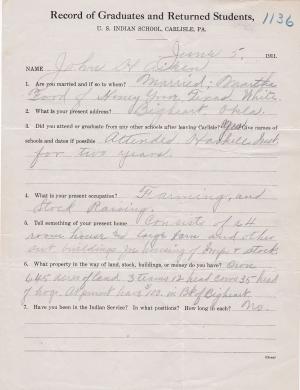 Record of Graduates and Returned Students,
1136
U. S. INDIAN SCHOOL, CARLISLE, PA.
June 5, 1911.
NAME John H
1. Are you married and if so to whom? Married; Martha
Ford of Honey Grove Texas White.
2. What is your present address? Bigheart, Okla.
3. Did you attend or graduate from any other schools after leaving Carlisle? Give names of
schools and dates if possible Attended Haskell Inst
for two years.
4. What is your present occupation? Farming, and
Stock Raising
5. Tell something of your present home Consists of a 4
room house and large barn and other
out buildings for housing of Imp. & stock
6. What property in the way of land, stock, buildings, or money do you have? Own
645 acres of land 3 teams 12 head cows 35 head
of hogs. At present have $ in B of Bigheart.
7. Have you been in the Indian Service? In what positions? How long in each? No.